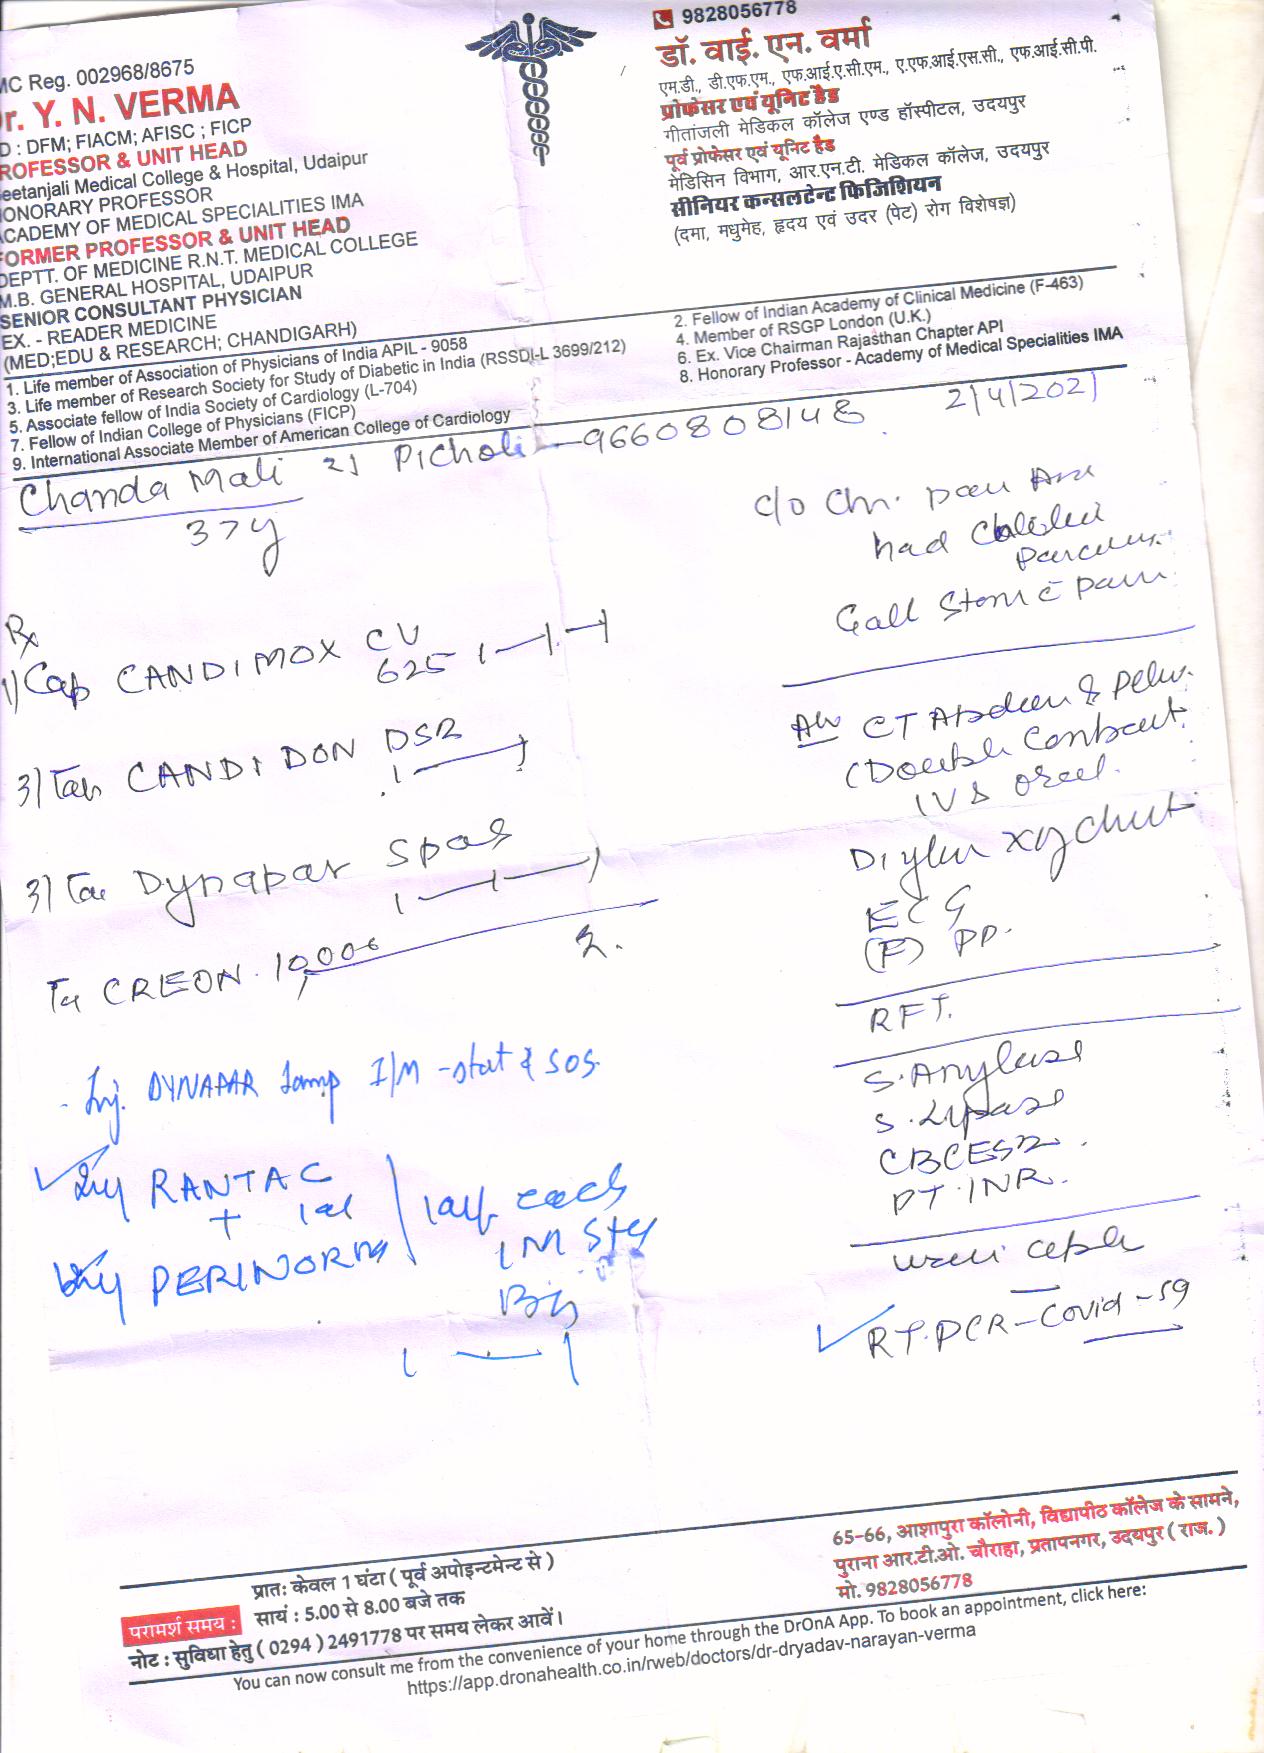 9828056778
MC Reg. 002968/8675
r. Y. N. VERMA
D : DFM; FIACM; AFISC ; FICP
ROFESSOR & UNIT HEAD
eetanjali Medical College & Hospital, Udaipur
ONORARY PROFESSOR
CADEMY OF MEDICAL SPECIALITIES IMA
ORMER PROFESSOR & UNIT HEAD
DEPTT. OF MEDICINE R.N.T. MEDICAL COLLEGE
M.B. GENERAL HOSPITAL, UDAIPUR
SENIOR CONSULTANT PHYSICIAN
EX. - READER MEDICINE
(MED;EDU & RESEARCH; CHANDIGARH)
डॉ. वाई. एन. वर्मा
एम.डी., डी.एफ.एम., एफ.आई.ए.सी.एम., ए.एफ.आई.एस.सी., एफ.आई.सी.पी.
प्रोफेसर एवं यूनिट हैड
गीतांजली मेडिकल कॉलेज एण्ड हॉस्पीटल, उदयपुर
पूर्व प्रोफेसर एवं यूनिट हैड
मेडिसिन विभाग, आर.एन.टी. मेडिकल कॉलेज, उदयपुर
सीनियर कन्सलटेन्ट फिजिशियन
(दमा, मधुमेह, हृदय एवं उदर (पेट) रोग विशेषज्ञ)
1. Life member of Association of Physicians of India APIL - 9058
2. Fellow of Indian Academy of Clinical Medicine (F-463)
3. Life member of Research Society for Study of Diabetic in India (RSSDI-L 3699/212)
4. Member of RSGP London (U.K.)
5. Associate fellow of India Society of Cardiology (L-704)
6. Ex. Vice Chairman Rajasthan Chapter API
7. Fellow of Indian College of Physicians (FICP)
8. Honorary Professor - Academy of Medical Specialities IMA
9. International Associate Member of American College of Cardiology
Chanda Mali Picholi - 9660808148 2/4/2021
37y
c/o Chr. pain
had
Gall Stone c pain
Rx
1) Cap CANDIMOX CV
625
3) Tab CANDIDON DSR
3) Tab Dynapar Spas
CREON 10,000
Inj. DYNAPAR 1amp I/M - stat & SOS.
Inj RANTAC
+
Inj PERINORM
1amp each
IM
CT Abdomen & Pelvis
(Double Contrast
IV & oral.
ECG
(F) PP.
RFT.
S. Amylase
S. Lipase
CBC ESR
PT. INR.
RT.PCR - Covid - 19
65-66, आशापुरा कॉलोनी, विद्यापीठ कॉलेज के सामने,
पुराना आर.टी.ओ. चौराहा, प्रतापनगर, उदयपुर ( राज. )
मो. 9828056778
परामर्श समय :
प्रातः केवल 1 घंटा ( पूर्व अपोइन्टमेन्ट से )
सायं : 5.00 से 8.00 बजे तक
नोट : सुविधा हेतु ( 0294 ) 2491778 पर समय लेकर आवें।
You can now consult me from the convenience of your home through the DrOnA App. To book an appointment, click here:
https://app.dronahealth.co.in/rweb/doctors/dr-dryadav-narayan-verma